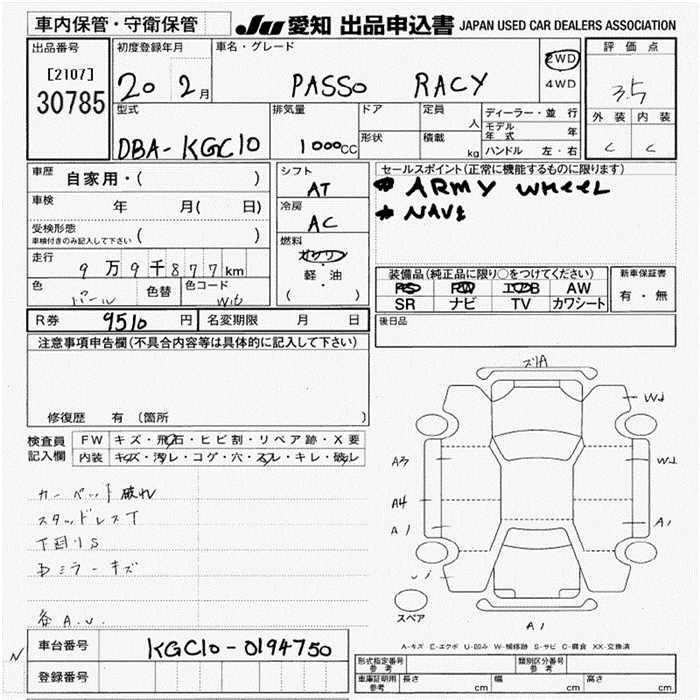 車内保管・守衛保管
JU 愛知 出品申込書 JAPAN USED CAR DEALERS ASSOCIATION
出品番号
[2107]
30785
初度登録年月
20 2月
車名・グレード
PASSO RACY
2WD
4WD
評価点
3.5
外装 内装
C C
型式
DBA-KGC10
排気量
1000CC
ドア
形状
定員
人
積載
kg
ディーラー・並行
モデル年式 年
ハンドル 左・右
車歴 自家用・( )
車検 年 月( 日)
受検形態
車検付きのみ記入して下さい ( )
走行 9万9千877km
色 パール 色替 色コード W16
シフト
AT
冷房
AC
燃料
ガソリン
・
軽・油
( )
セールスポイント(正常に機能するものに限ります)
* ARMY WHEEL
* NAVI
装備品(純正品に限り○をつけてください)
PS PW エアB AW
SR ナビ TV カワシート
新車保証書
有・無
R券 9510円 名変期限 月 日
後日品
注意事項申告欄(不具合内容等は具体的に記入して下さい)
修復歴 有 (箇所 )
検査員
記入欄
FW キズ・飛石・ヒビ割・リペア跡・X要
内装 キズ・汚レ・コゲ・穴・スレ・キレ・破レ
カーペット破れ
スタッドレスT
下回りS
Dミラーキズ
各A.U.
ズリA
W2
A3
W2
A4
A1
A1
スペア
A1
A-キズ E-エクボ U-凹み W-補修跡 S-サビ C-腐食 XX-交換済
N
車台番号 KGC10-0194750
登録番号
形式指定番号
参考
類別区分番号
参考
車庫証明用
参考
長さ cm 幅 cm 高さ cm